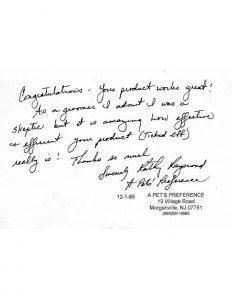 Congratulations - Your product works great!
As a groomer I admit I was a
skeptic but it is amazing how effective
& efficient your product (Ticked Off)
really is! Thanks so much
Sincerely Kathy Raymond
A Pets' Preference
12-1-95
A PET'S PREFERENCE
13 Village Road
Morganville, NJ 07751